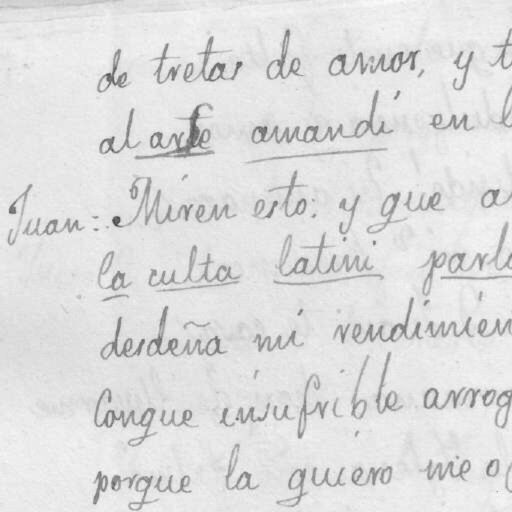 de tretas de amor, y
al arte amandi en
Juan: Miren esto: y que
la culta latini
desdeña mi
Conque insufrible
porque la quiero me